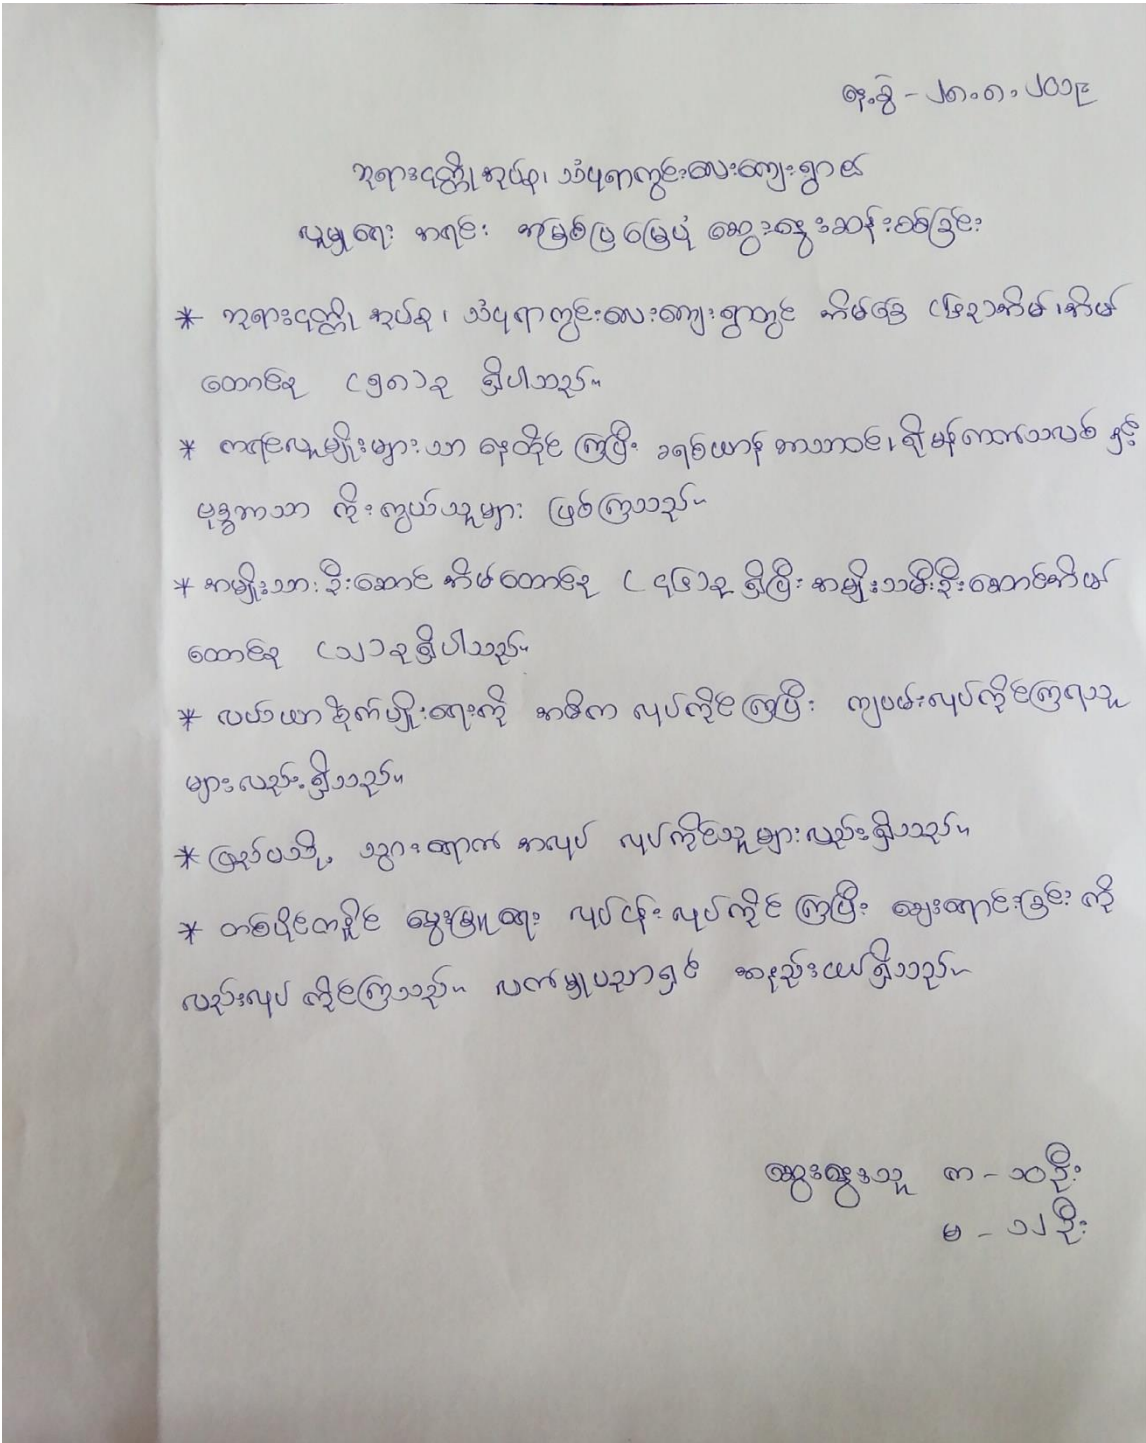 နေ့စွဲ - ၂၈.၈.၂၀၁၉
ဘုရားငုတ္တိုအုပ်စု၊ သံပုရာကွင်းလေးကျေးရွာ၏
လူမှုရေး အရင်း အမြစ်ပြမြေပုံ ဆွေးနွေးဆန်းစစ်ခြင်း
* ဘုရားငုတ္တို အုပ်စု၊ သံပုရာကွင်းလေးကျေးရွာတွင် အိမ်ခြေ (၆၃)အိမ်၊ အိမ်
ထောင်စု (၅၈)စု ရှိပါသည်။
* ကရင်လူမျိုးများသာ နေထိုင်ကြပြီး ခရစ်ယာန် ဘာသာဝင်၊ ရိုမန်ကတ်သလစ် နှင့်
ဗုဒ္ဓဘာသာ ကိုးကွယ်သူများ ဖြစ်ကြသည်။
* အမျိုးသား ဦးဆောင် အိမ်ထောင်စု (၄၆)စု ရှိပြီး အမျိုးသမီးဦးဆောင်အိမ်
ထောင်စု (၁၂)စု ရှိပါသည်။
* လယ်ယာ စိုက်မျိုးရေးကို အဓိက လုပ်ကိုင်ကြပြီး ကျပမ်းလုပ်ကိုင်ကြရသူ
များလည်း ရှိသည်။
* ပြည်ပသို့ သွားရောက် အလုပ် လုပ်ကိုင်သူများလည်းရှိသည်။
* တစ်ပိုင်တစ်နိုင် မွေးမြူရေး လုပ်ငန်း လုပ်ကိုင် ကြပြီး ဈေးရောင်းခြင်း ကို
လည်းလုပ် ကိုင်ကြသည်။ လက်မှုပညာရှင် အနည်းငယ်ရှိသည်။
ဆွေးနွေးသူ က - ၁၀ဦး
မ - ၁၂ဦး